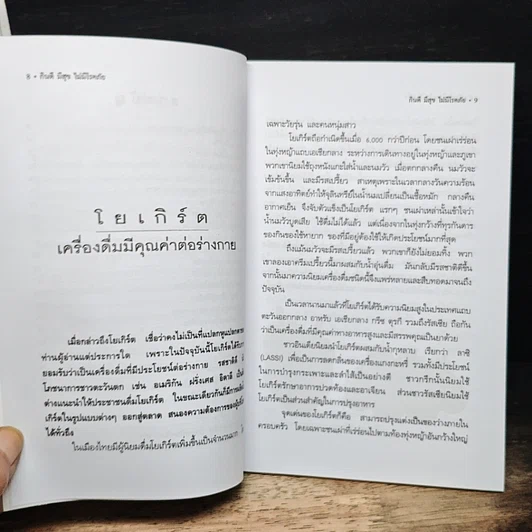 ๘ • กินดี มีสุข ไม่มีโรคภัย
โยเกิร์ต
เครื่องดื่มมีคุณค่าต่อร่างกาย
เมื่อกล่าวถึงโยเกิร์ต เชื่อว่าคงไม่เป็นที่แปลกหูแปลกตา
ท่านผู้อ่านแต่ประการใด เพราะในปัจจุบันนี้โยเกิร์ตได้รับ
ยอมรับว่าเป็นเครื่องดื่มที่มีประโยชน์ต่อร่างกาย รสชาติดี
โภชนาการชาวตะวันตก เช่น อเมริกัน ฝรั่งเศส อิตาลี
ต่างแนะนำให้ประชาชนดื่มโยเกิร์ต ในขณะเดียวกันก็มีการผลิต
โยเกิร์ตในรูปแบบต่างๆ ออกสู่ตลาด สนองความต้องการของผู้
ได้ทั่วถึง
ในเมืองไทยมีผู้นิยมดื่มโยเกิร์ตเพิ่มขึ้นเป็นจำนวนมาก
กินดี มีสุข ไม่มีโรคภัย • ๙
เฉพาะวัยรุ่น และคนหนุ่มสาว
โยเกิร์ตถือกำเนิดขึ้นเมื่อ ๖,๐๐๐ กว่าปีก่อน โดยชนเผ่าเร่ร่อน
ในทุ่งหญ้าแถบเอเชียกลาง ระหว่างการเดินทางอยู่ในทุ่งหญ้าและภูเขา
พวกเขานิยมใช้ถุงหนังแกะใส่น้ำและนมวัว เมื่อตกกลางคืน นมวัวจะ
เข้มข้นขึ้น และมีรสเปรี้ยว สาเหตุเพราะในเวลากลางวันความร้อน
จากแสงอาทิตย์ทำให้จุลินทรีย์ในน้ำนมเปลี่ยนเป็นเชื้อหมัก กลางคืน
อากาศเย็น จึงจับตัวแข็งเป็นโยเกิร์ต แรกๆ ชนเผ่าเหล่านั้นเข้าใจว่า
น้ำนมวัวบูดเสีย ใช้ดื่มไม่ได้แล้ว แต่เนื่องจากในทุ่งกว้างที่ทุรกันดาร
ของกินของใช้หายาก ของที่มีอยู่ต้องใช้ให้เกิดประโยชน์มากที่สุด
ถึงแม้นมวัวจะมีรสเปรี้ยวแล้ว พวกเขาก็ยังไม่ยอมทิ้ง พวก
เขาลองเอาครีมเปรี้ยวนี้มาผสมกับน้ำอุ่นดื่ม มันกลับมีรสชาติดีขึ้น
จากนั้นมาความนิยมเครื่องดื่มชนิดนี้จึงแพร่หลายและสืบทอดมาจนถึง
ปัจจุบัน
เป็นเวลานานมาแล้วที่โยเกิร์ตได้รับความนิยมสูงในประเทศแถบ
ตะวันออกกลาง อาหรับ เอเชียกลาง กรีซ ตุรกี รวมถึงรัสเซีย ถือกัน
ว่าเป็นเครื่องดื่มที่มีคุณค่าทางอาหารสูงและมีสรรพคุณเป็นยาด้วย
ชาวอินเดียนิยมนำโยเกิร์ตผสมกับน้ำกุหลาบ เรียกว่า ลาซี
(LASSI) เพื่อเป็นการลดกลิ่นของเครื่องแกงกะหรี่ รวมทั้งมีประโยชน์
ในการบำรุงกระเพาะและลำไส้เป็นอย่างดี ชาวกรีกนั้นนิยมใช้
โยเกิร์ตรักษาอาการปวดท้องและอาเจียน ส่วนชาวรัสเซียนิยมใช้
โยเกิร์ตเป็นส่วนสำคัญในการปรุงอาหาร
จุดเด่นของโยเกิร์ตก็คือ สามารถปรุงแต่งเป็นของว่างภายใน
ครอบครัว โดยเฉพาะชนเผ่าที่เร่ร่อนไปตามท้องทุ่งหญ้าอันกว้างใหญ่